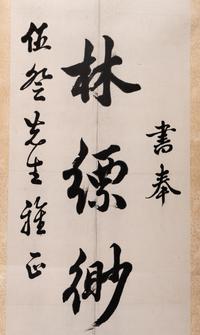 書奉
林縹緲
伍先生雅正